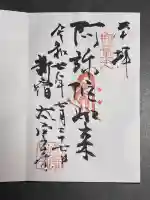 奉拝
阿弥陀如来
令和七年七月二十七日
新宿 太宗寺